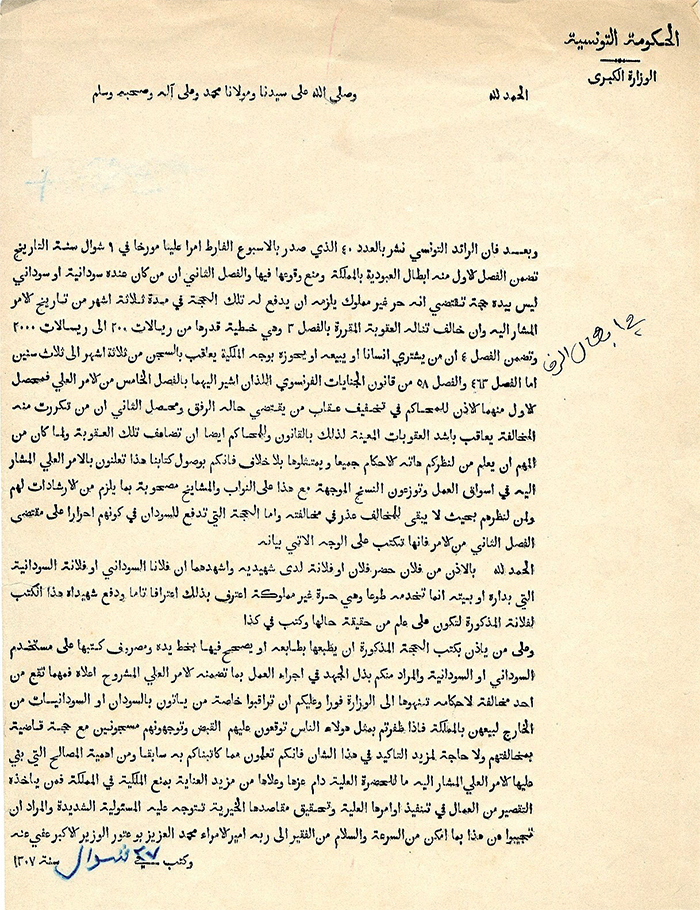 الحكومة التونسية
الوزارة الكبرى
الحمد لله وصلى الله على سيدنا ومولانا محمد وعلى آله وصحبه وسلم
وبعد فان الرائد التونسي نشر بالعدد ٤٠ الذي صدر بالاسبوع الفارط امرا عليا مورخا في ٩ شوال سنة التاريخ
تضمن الفصل الاول منه ابطال العبودية بالمملكة ومنع وقوعها فيها والفصل الثاني ان من كان عنده سودانية او سوداني
ليس بيده حجة تقتضي انه حر غير مملوك يلزمه ان يدفع له تلك الحجة في مدة ثلاثة اشهر من تاريخ الامر
المشار اليه وان خالف تناله العقوبة المقررة بالفصل ٣ وهي خطية قدرها من ريالات ٢٠٠ الى ريالات ٢٠٠٠
وتضمن الفصل ٤ ان من يشتري انسانا او يبيعه او يحوزه بوجه الملكية يعاقب بالسجن من ثلاثة اشهر الى ثلاث سنين
اما الفصل ٤٦٣ والفصل ٥٨ من قانون الجنايات الفرنسوي اللذان اشير اليهما بالفصل الخامس من الامر العلي فمحصل
الاول منهما الاذن للمحاكم في تخفيف عقاب من يقتضي حاله الرفق ومحصل الثاني ان من تكررت منه
المخالفة يعاقب باشد العقوبات المعينة لذلك بالقانون وللمحاكم ايضا ان تضاعف تلك العقوبة ولما كان من
المهم ان يعلم من لنظركم هاته الاحكام جميعا ويمتثلوها بلا خلاف فانكم بوصول كتابنا هذا تعلنون بالامر العلي المشار
اليه في اسواق العمل وتوزعون النسخ الموجهة مع هذا على النواب والمشايخ مصحوبة بما يلزم من الارشادات لهم
ولمن لنظرهم بحيث لا يبقى للمخالف عذر في مخالفته واما الحجة التي تدفع للسودان في كونهم احرارا على مقتضى
الفصل الثاني من الامر فانها تكتب على الوجه الاتي بيانه
الحمد لله بالاذن من فلان حضر فلان او فلانة لدى شهيديه واشهدهما ان فلانا السوداني او فلانة السودانية
التي بداره او بيته انما تخدمه طوعا وهي حرة غير مملوكة اعترف بذلك اعترافا تاما ودفع شهيداه هذا الكتب
لفلانة المذكورة لتكون على علم من حقيقة حالها وكتب في كذا
وعلى من ياذن بكتب الحجة المذكورة ان يطبعها بطابعه او يصحح فيها بخط يده ومصروف كتبها على مستخدم
السوداني او السودانية والمراد منكم بذل الجهد في اجراء العمل بما تضمنه الامر العلي المشروح اعلاه فمهما تقع من
احد مخالفة لاحكامه تنهوها الى الوزارة فورا وعليكم ان تراقبوا خاصة من ياتون بالسودان او السودانيات من
الخارج لبيعهن بالمملكة فاذا ظفرتم بمثل هولاء الناس توقعون عليهم القبض وتوجهونهم مسجونين مع حجة قاضية
بمخالفتهم ولا حاجة لمزيد التاكيد في هذا الشان فانكم تعلمون مما كاتبناكم به سابقا ومن اهمية المصالح التي بني
عليها الامر العلي المشار اليه ما للحضرة العلية دام عزها وعلاها من مزيد العناية بمنع الملكية في المملكة فمن ياخذه
التقصير من العمال في تنفيذ اوامرها العلية وتحقيق مقاصدها الخيرية تتوجه عليه المسئولية الشديدة والمراد ان
تجيبوا عن هذا بما امكن من السرعة والسلام من الفقير الى ربه امير الامراء محمد العزيز بوعتور الوزير الاكبر عفي عنه
وكتب في ٢٧ شوال سنة ١٣٠٧